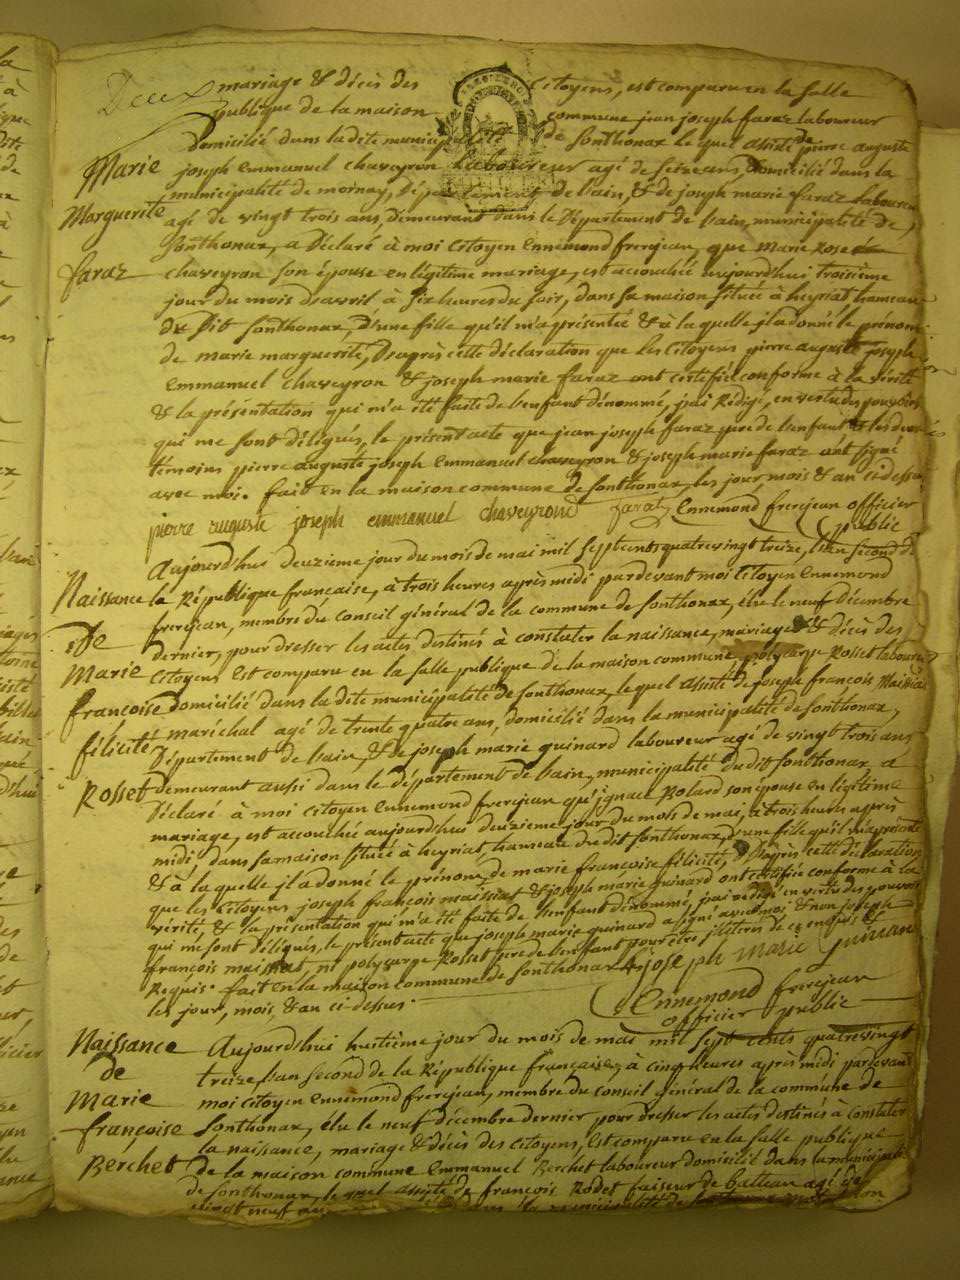 Deux
mariage & décès des Citoyens, est comparu en la Salle
publique de la maison commune jean joseph faraz laboureur
domicilié dans la dite municipalité de Sonthonax le quel assisté de pierre auguste
Marie joseph Emmanuel chaveyron laboureur agé de seize ans, Domicilié dans la
municipalité de mornay, Département de l'ain, & de joseph marie faraz laboureur
Marguerite agé de vingt trois ans, demeurant dans le Département de l'ain, municipalité de
Sonthonax, a Déclaré à moi Citoyen Ennemond frerejean, que Marie Rose
faraz chaveyron son épouse en légitime mariage, est accouchée aujourdhui troisième
jour du mois davril à six heures du soir, dans sa maison située à heyriat hameau
du Dit Sonthonax, d'une fille qu'il m'a présentée & à la quelle il a donné le prénom
de marie marguerite, D'après cette déclaration que les Citoyens pierre auguste joseph
Emmanuel chaveyron & joseph marie faraz ont certifiée conforme à la vérité
& la présentation qui m'a été faite de l'enfant dénommé, j'ai Rédigé, en vertu des pouvoirs
qui me sont délégués, le présent acte que jean joseph faraz père de l'enfant & les deux
témoins pierre auguste joseph Emmanuel chaveyron & joseph marie faraz ont signé
avec moi. fait en la maison commune de Sonthonax, les jour mois & an ci-dessus
pierre auguste joseph emmanuel chaveyrond faraz Ennemond frerejean officier
public
Aujourd'hui deuzieme jour du mois de mai mil Sept cents quatre vingt treize, l'an Second de
Naissance la République française, à trois heures après midi pardevant moi Citoyen Ennemond
frerejean, membre du Conseil général de la commune de Sonthonax, élu le neuf Décembre
De dernier, pour dresser les actes destinés à constater la naissance, mariage & décès des
Marie Citoyens Est comparu en la Salle publique de la maison commune, polycarpe Rosset laboureur
françoise domicilié dans la dite municipalité de Sonthonax, le quel assisté de joseph françois Maissiat
maréchal agé de trente quatre ans, domicilié dans la municipalité de Sonthonax,
félicité Département de l'ain, & de joseph marie guinard laboureur agé de vingt trois ans
Rosset demeurant aussi dans le département de l'ain, municipalité du dit Sonthonax, a
Déclaré à moi Citoyen Ennemond frerejean qu'ignace Bolard son épouse en légitime
mariage, est accouchée aujourd'hui deuzieme jour du mois de mai, à trois heures après
midi dans sa maison située à heyriat hameau du dit Sonthonax, d'une fille qu'il m'a présentée
& à la quelle il a donné le prénom, de marie françoise félicité, D'après cette déclaration
que les Citoyens joseph françois maissiat & joseph marie guinard ont certifiée conforme à la
vérité, & la présentation qui m'a été faite de l'enfant dénommé, j'ai rédigé en vertu des pouvoirs
qui me sont délégués, le présent acte que joseph marie guinard a signé avec moi & non joseph
françois maissiat, ni polycarpe Rosset père de l'enfant pour être illiterés de ce enquis &
Requis. fait en la maison commune de Sonthonax joseph marie guinard
les jour, mois, & an ci-dessus. Ennemond frerejean
officier public
Naissance Aujourd'hui huitième jour du mois de mai mil Sept cents quatre vingt
de treize l'an second de la République française, à cinq heures après midi pardevant
Marie moi Citoyen Ennemond frerejean, membre du conseil général de la commune de
françoise Sonthonax, élu le neuf décembre dernier pour dresser les actes destinés à constater
la naissance, mariage & décès des Citoyens, Est comparu en la Salle publique
Berchet de la maison commune Emmanuel Berchet laboureur domicilié dans la municipalité
de Sonthonax, le quel assisté de françois Rodet faiseur de agé de
vingt neuf ans dans la municipalité de